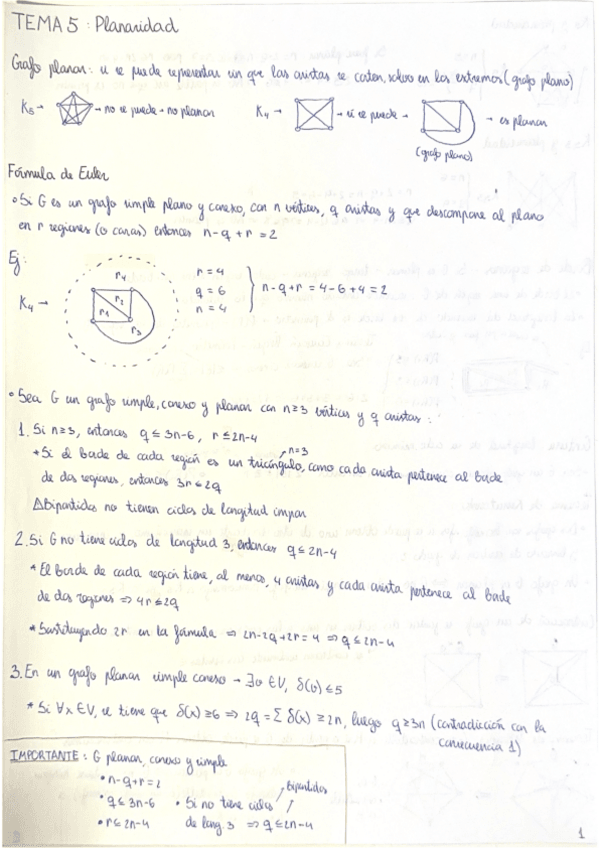 TEMA 5 : Planaridad
Grafo planar: si se puede representar sin que las aristas se corten, salvo en los extremos (grafo plano)
K₅ → → no se puede → no planar K₄ → → sí se puede → → es planar
(grafo plano)
Fórmula de Euler
• Si G es un grafo simple plano y conexo, con n vértices, q aristas y que descompone al plano
en r regiones (o caras) entonces n-q+r=2
Ej:
K₄ →
r₄
r₂
r₁
r₃
r = 4
q = 6
n = 4
n-q+r = 4-6+4 = 2
• Sea G un grafo simple, conexo y planar con n≥3 vértices y q aristas :
1. Si n≥3, entonces q ≤ 3n-6, r ≤ 2n-4
n=3
* Si el borde de cada región es un triángulo, como cada arista pertenece al borde
de dos regiones, entonces 3r ≤ 2q
△Bipartidos no tienen ciclos de longitud impar
2. Si G no tiene ciclos de longitud 3, entonces q ≤ 2n-4
* El borde de cada región tiene, al menos, 4 aristas y cada arista pertenece al borde
de dos regiones ⇒ 4r ≤ 2q
* Sustituyendo 2r en la fórmula ⇒ 2n-2q+2r = 4 ⇒ q ≤ 2n-4
3. En un grafo planar simple conexo → ∃v ∈ V, δ(v) ≤ 5
* Si ∀x ∈ V, se tiene que δ(x) ≥ 6 ⇒ 2q = Σ δ(x) ≥ 2n, luego q ≥ 3n (contradicción con la
consecuencia 1)
IMPORTANTE : G planar, conexo y simple
• n-q+r = 2
• q ≤ 3n-6
• r ≤ 2n-4
Bipartidos
• Si no tiene ciclos
de long. 3 ⇒ q ≤ 2n-4
1